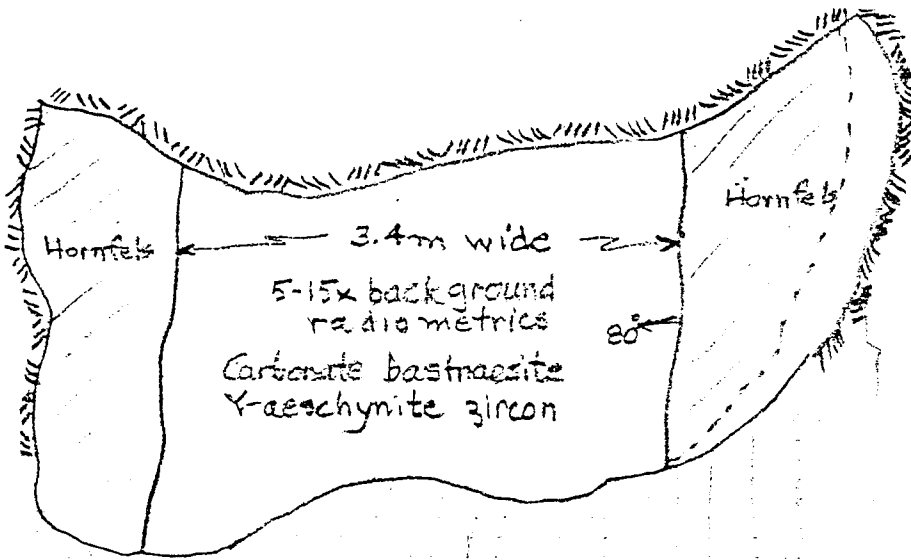 Hornfels
Hornfels
3.4m wide
5-15x background
radiometrics
80°
Carbonate bastnaesite
Y-aeschynite zircon